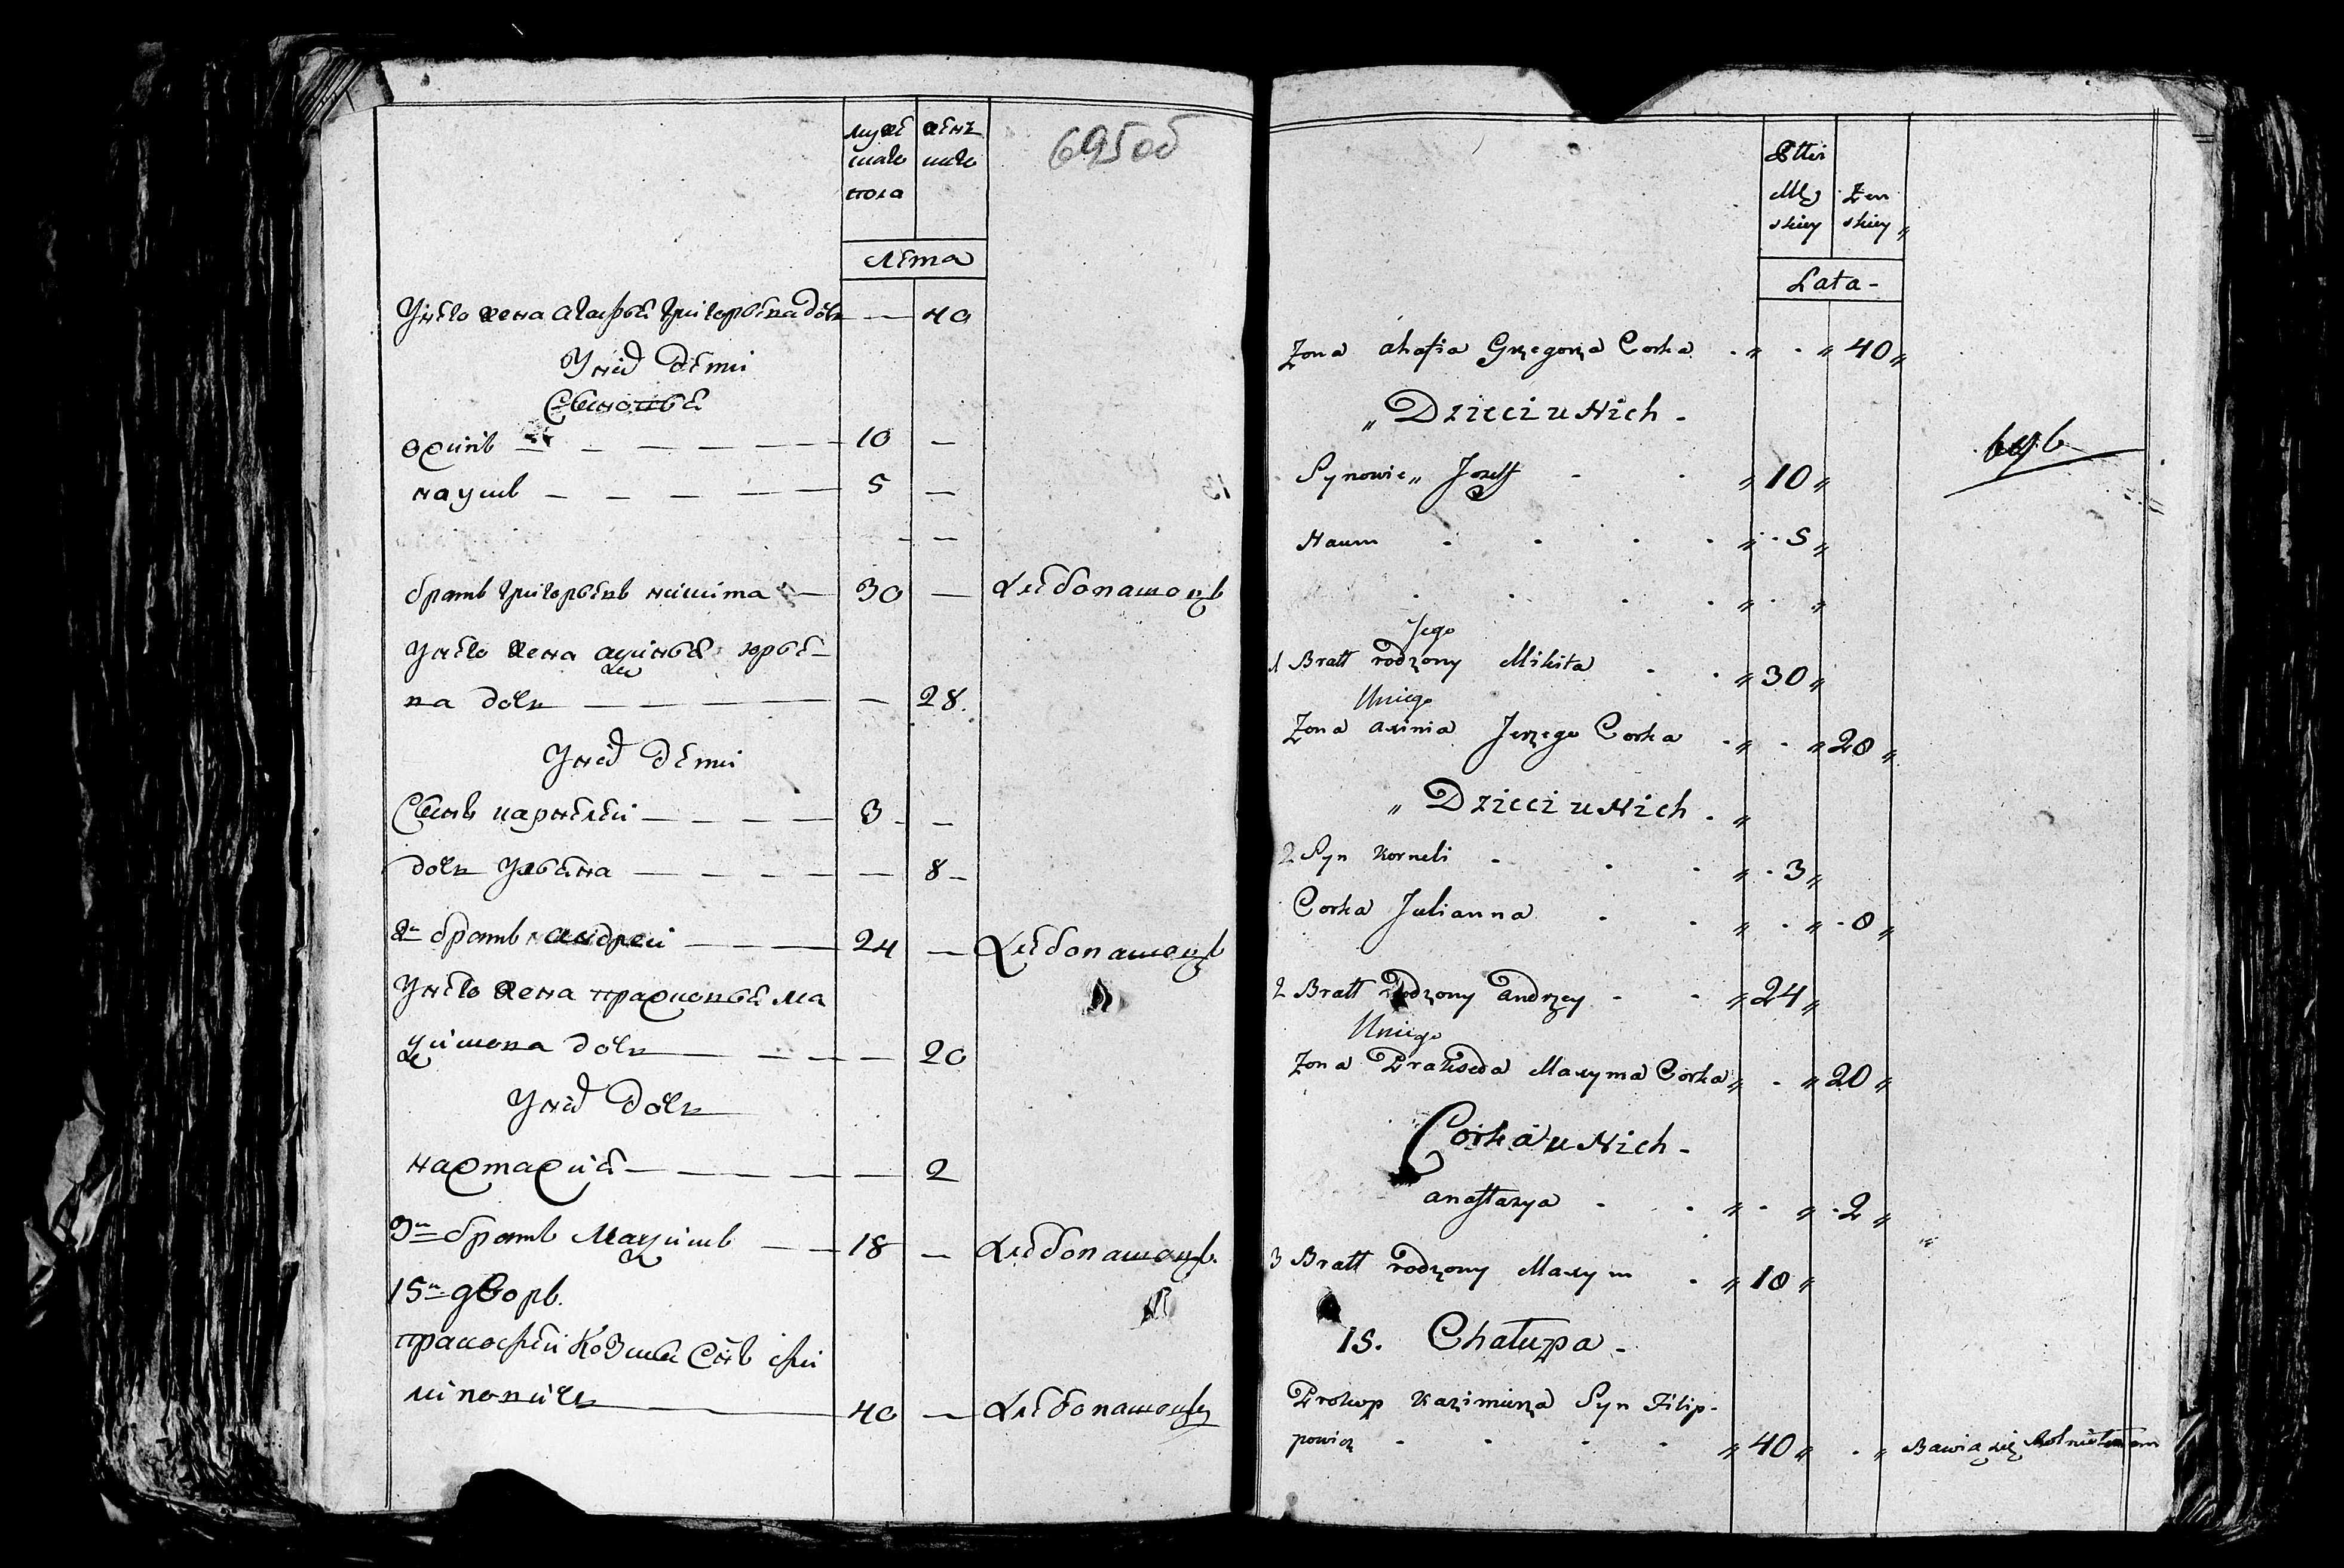 муже женs
скаго скаго
пола
695об
Лета
У него жена агафия григорьева дочь — 40
У них дети
Сыновья
Осип — 10 —
наум — 5 —
— —
брат григорьев никита — 30 — Хлебопашец
У него жена аксинья юрье-
ва дочь — — 28.
У них дети
Сын карнелей — 3 —
дочь Ульяна — — 8 —
2й братъ андрей — 24 — Хлебопашецъ
У него жена прасковья ма
ксимова дочь — — 20
У них дочь
настасия — — 2
3й братъ Максимъ — 18 — Хлебопашецъ.
15й дворъ.
пракофей Козмы Сынъ фи
липовичь — 40 — Хлебопашецъ
Płci
Mę Żen
skiey skiey „
Lata -
Zona ahafia Grzegorza Corka . „ . „ 40 „
„ Dzieci u Nich -
Synowie „ Jozeff „ 10 „
Naum „ . 5 „
„ . „
Jego
1 Bratt rodzony Mikita „ 30 „
Uniego
Zona axinia Jerzego Corka . „ . „ 28 „
„ Dzieci u Nich . „
2 Syn Korneli „ . 3 „
Corka Julianna „ . „ . 8 „
2 Bratt Rodzony andrzey „ 24 „
Uniego
Zona Prakseda Maxyma Corka „ . „ 20 „
Corka u Nich -
anastazya „ . „ . 2 „
3 Bratt rodzony Maxym „ 18 „
15. Chałupa -
Prokop Kazimierza Syn Filip-
powicz „ 40 „ . „ Bawią się Rolnictwem